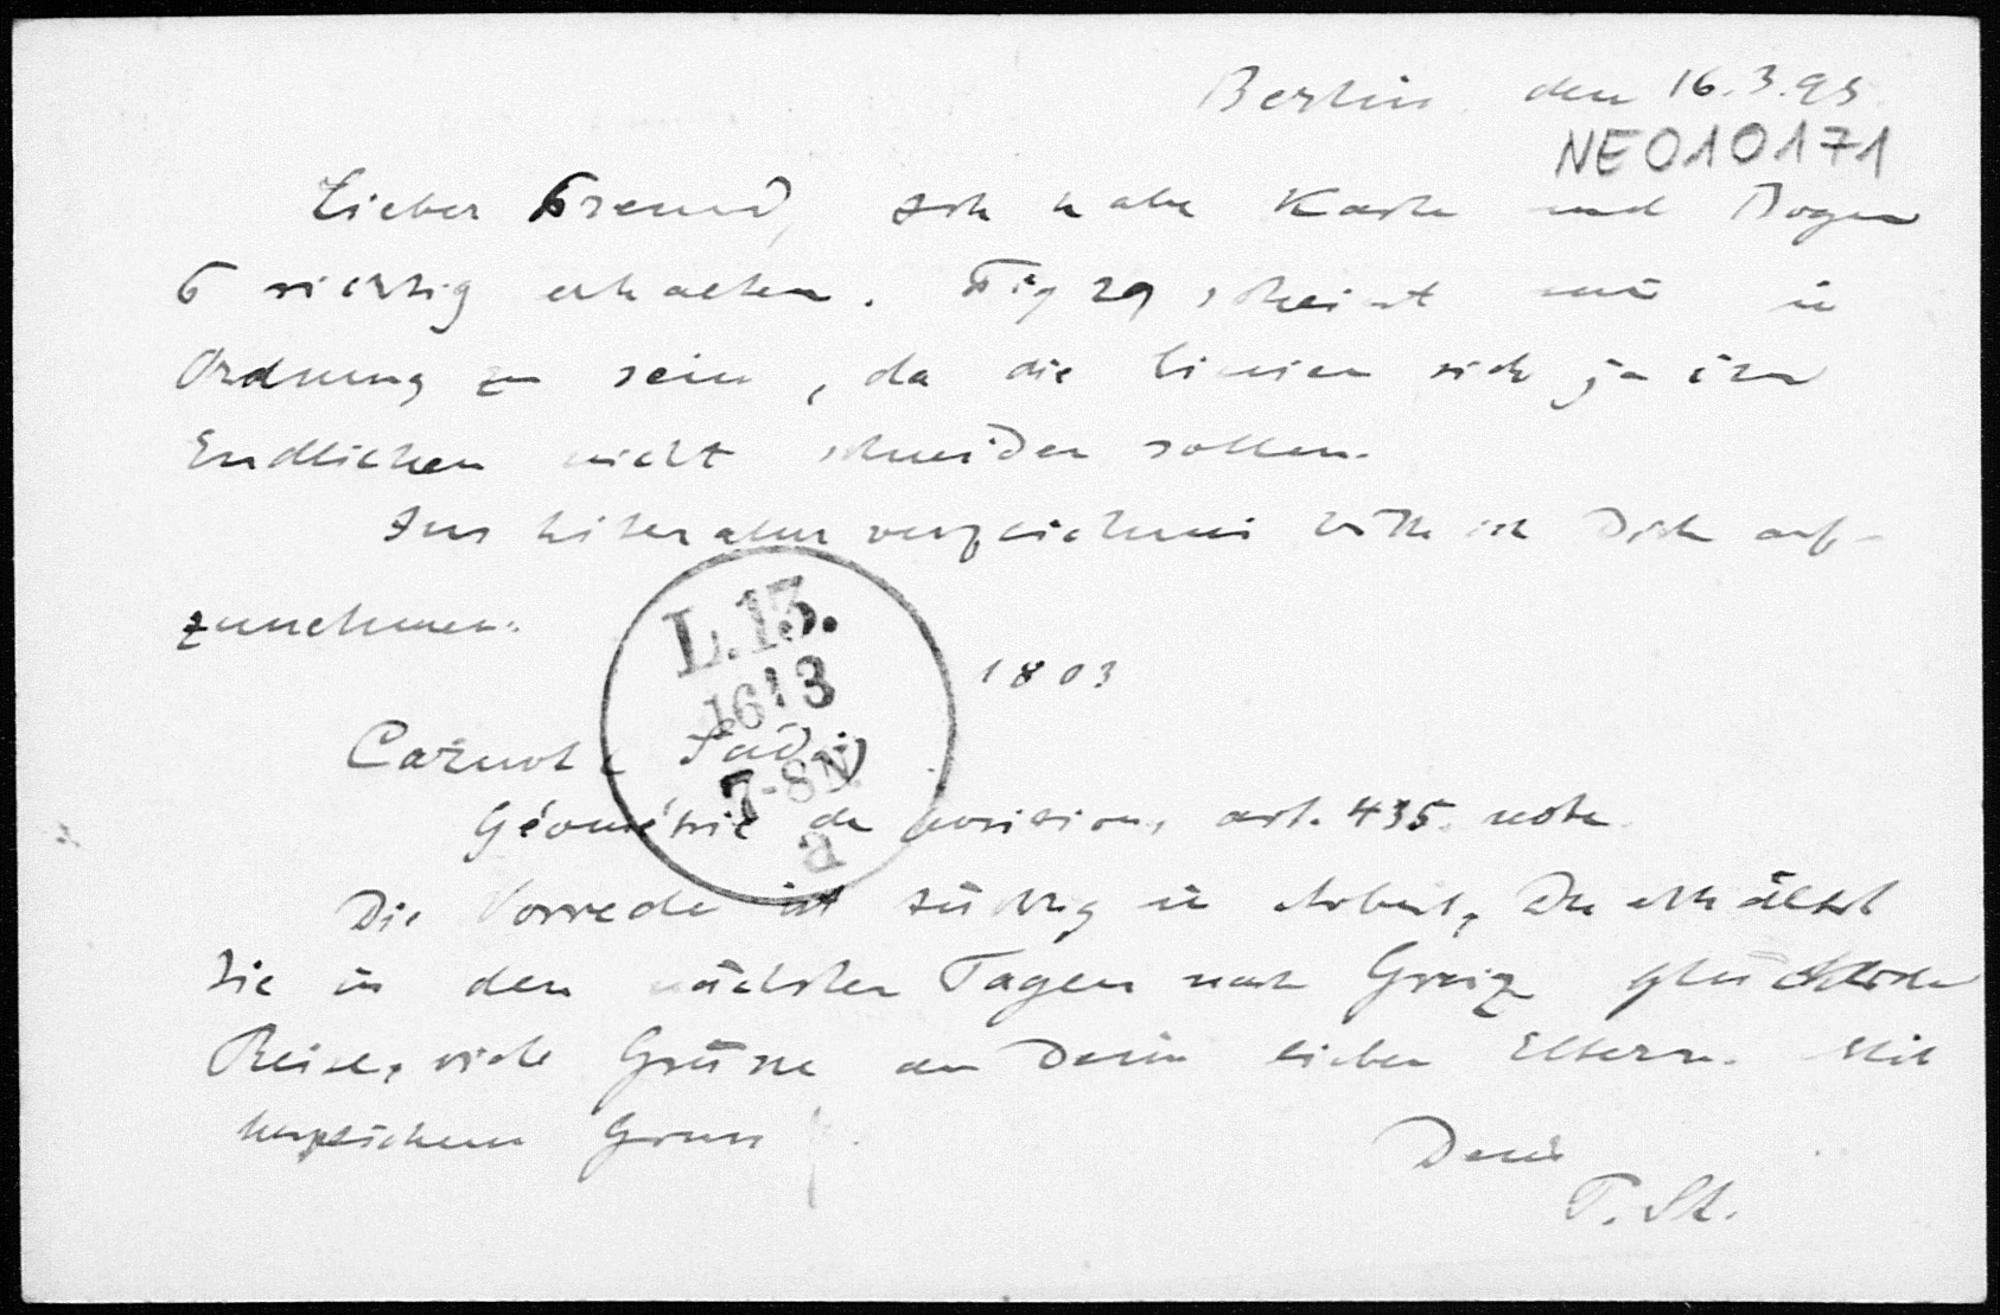 Berlin den 16.3.95.
NE010171
Lieber Freund, Ich habe Karte und Bogen
6 richtig erhalten. Fig 29 scheint mir in
Ordnung zu sein, da die Linien sich ja im
Endlichen nicht schneiden sollen.
Ins Literaturverzeichnis bitte ich Dich auf-
zunehmen.
L.13.
16/3
7-8N.
a
1803
Carnot
Géométrie de position, art. 435. note.
Die Vorrede ist tüchtig in Arbeit, Du erhältst
sie in den nächsten Tagen nach Greiz glückliche
Reise, viele Grüsse an Deine lieben Eltern. Mit
herzlichem Gruss
Dein
P. St.